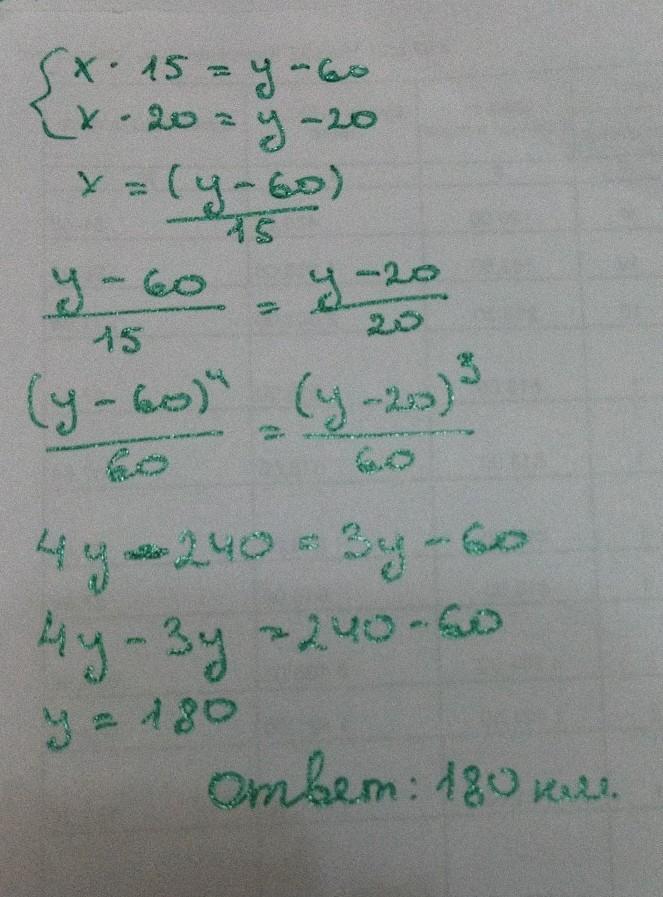 { x · 15 = y - 60
x · 20 = y - 20
x = (y - 60) / 15
y - 60 / 15 = y - 20 / 20
(y - 60)⁴ / 60 = (y - 20)³ / 60
4y - 240 = 3y - 60
4y - 3y = 240 - 60
y = 180
Ответ: 180 км.